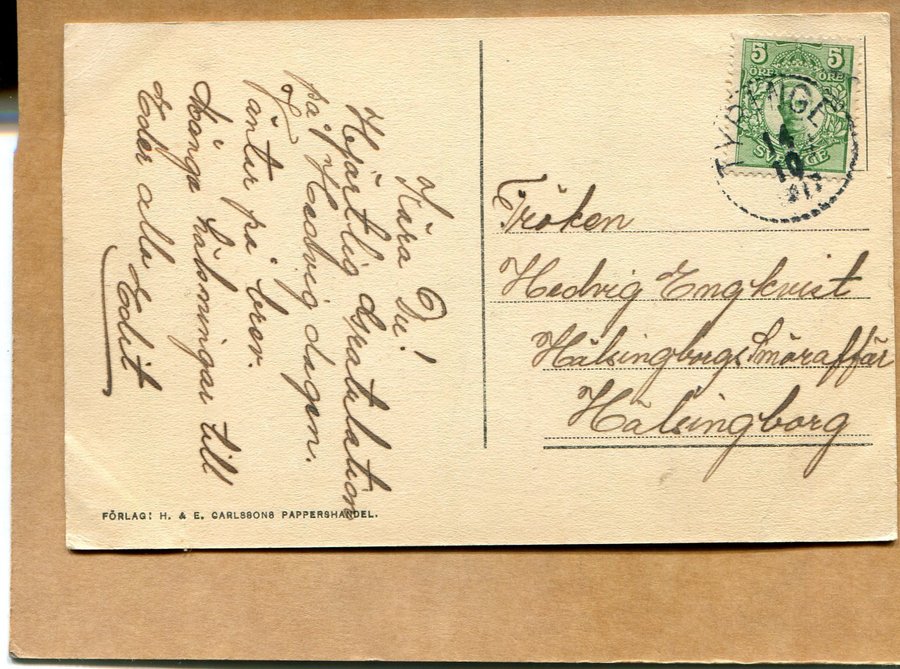 Kära Du!
Hjärtlig Gratulation
på Hedvig dagen.
J
väntar på brev.
Många hälsningar till
Eder alla Edit
FÖRLAG: H. & E. CARLSSONS PAPPERSHANDEL.
5 5
ÖRE ÖRE
SVERIGE
TYRINGE
14
10
Fröken
Hedvig Engkvist
Hälsingborgs Smöraffär
Hälsingborg